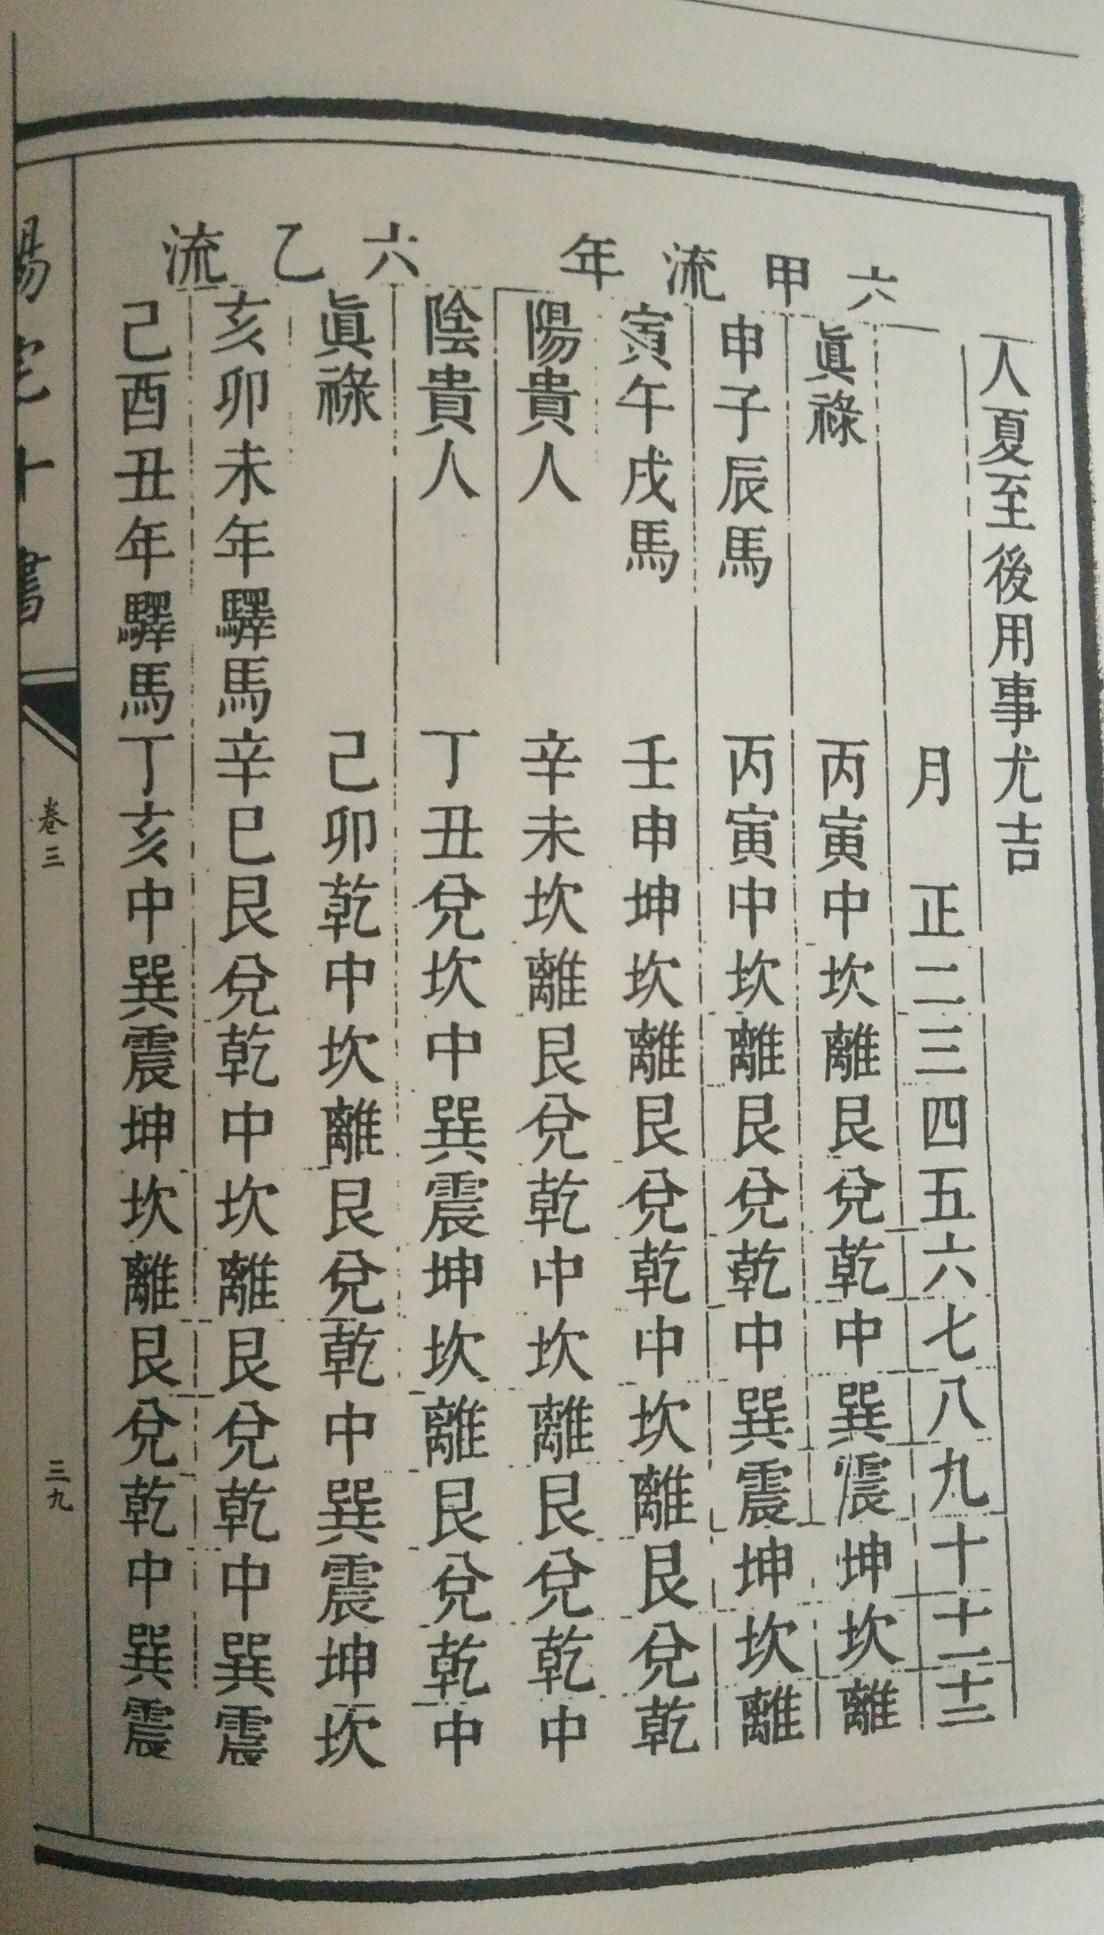 人夏至後用事尤吉
月 正二三四五六七八九十十一十二
六甲流年
眞祿 丙寅中坎離艮兌乾中巽震坤坎離
申子辰馬 丙寅中坎離艮兌乾中巽震坤坎離
寅午戌馬 壬申坤坎離艮兌乾中坎離艮兌乾
陽貴人 辛未坎離艮兌乾中坎離艮兌乾中
陰貴人 丁丑兌坎中巽震坤坎離艮兌乾中
六乙流
眞祿 己卯乾中坎離艮兌乾中巽震坤坎
亥卯未年驛馬 辛巳艮兌乾中坎離艮兌乾中巽震
己酉丑年驛馬 丁亥中巽震坤坎離艮兌乾中巽震
陽宅十書
卷三
三九